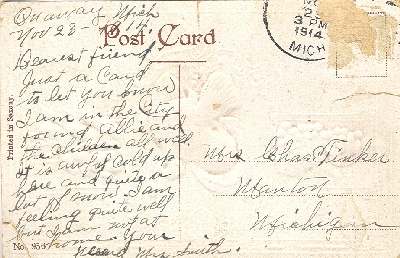 Onaway Mich
Nov 23 -
Post Card
Dearest friend
Just a Card
to let you know
I am in the City
found Allie and
the children all well
it is awful cold up
here and quite a
lot of snow I am
feeling quite well
but I am not at
home. Your
friend Mrs Smith.
3 PM
1914
MICH
Mrs Chas. Tinker
Manton
Michigan
Printed in Saxony.
No.